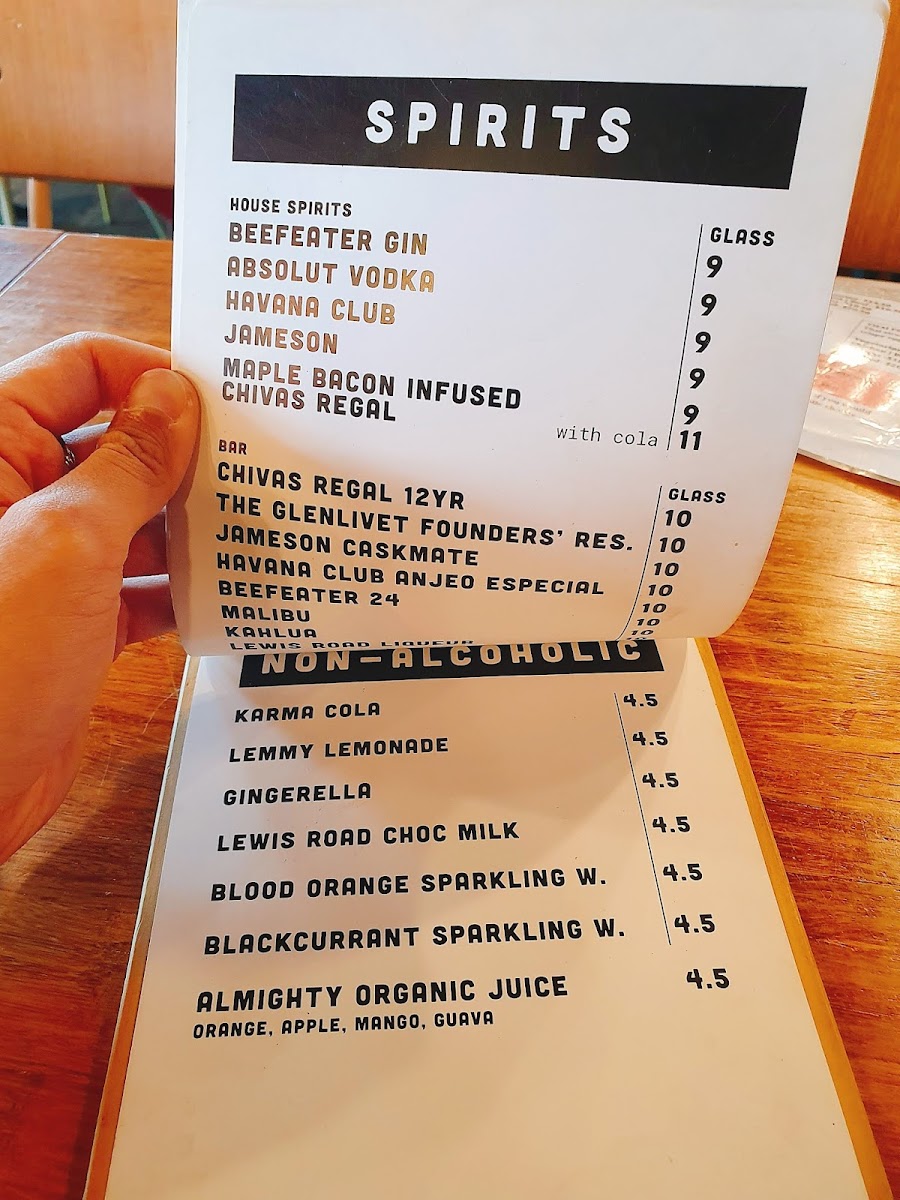 SPIRITS
HOUSE SPIRITS
GLASS
BEEFEATER GIN 9
ABSOLUT VODKA 9
HAVANA CLUB 9
JAMESON 9
MAPLE BACON INFUSED
CHIVAS REGAL 9
with cola 11
BAR
GLASS
CHIVAS REGAL 12YR 10
THE GLENLIVET FOUNDERS' RES. 10
JAMESON CASKMATE 10
HAVANA CLUB ANJEO ESPECIAL 10
BEEFEATER 24 10
MALIBU 10
KAHLUA 10
LEWIS ROAD LIQUEUR
NON-ALCOHOLIC
KARMA COLA 4.5
LEMMY LEMONADE 4.5
GINGERELLA 4.5
LEWIS ROAD CHOC MILK 4.5
BLOOD ORANGE SPARKLING W. 4.5
BLACKCURRANT SPARKLING W. 4.5
ALMIGHTY ORGANIC JUICE 4.5
ORANGE, APPLE, MANGO, GUAVA